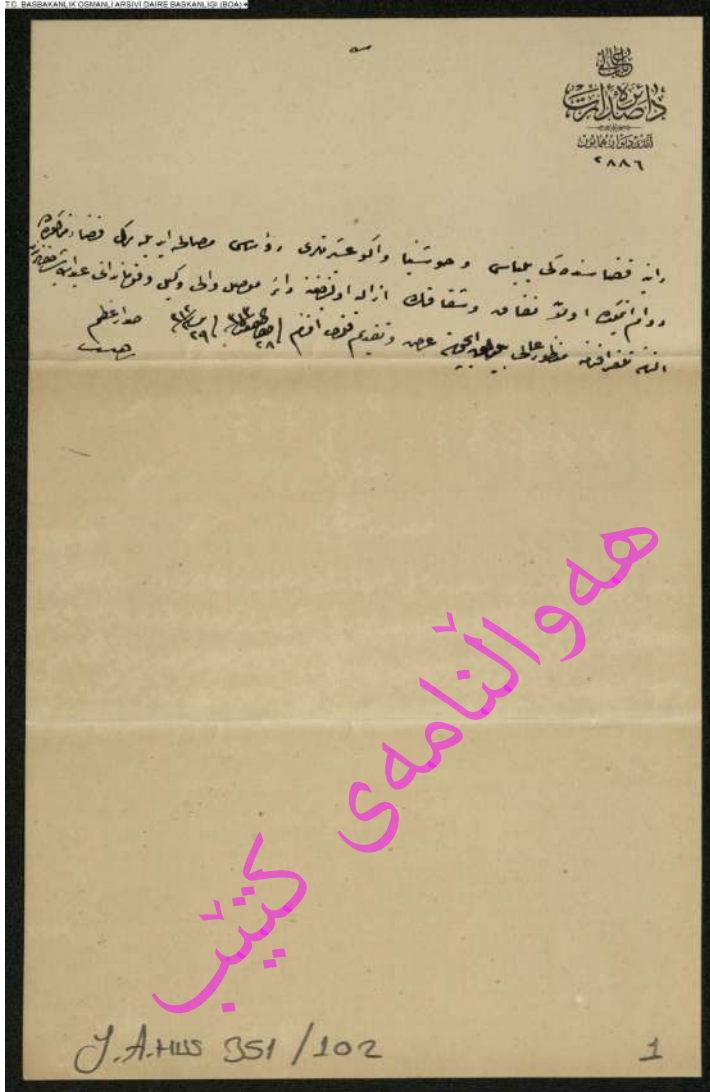 T.C. BAŞBAKANLIK OSMANLI ARŞİVİ DAİRE BAŞKANLIĞI (BOA)
باب عالی
دائرهٔ صدارت
آمدئ دیوان همایون
٢٨٨٦
رانیه قضاسنده کی بلباس و خوشناو واکو عشیرتلری رؤساسی مصالحه ایدیله رك قضاء مذکورده
دوام ایتمکده اولان نفاق وشقاقك ازاله اولندیغنه دائر موصل والی وکیلی وقوماندانی عبدالله
النان تلغرافنامه منظور عالی عرض وتقدیم قلندی افندم ٢٨ ٢٩ صدراعظم
هەواڵنامەی کتێب
Y.A.HUS 351/102
1